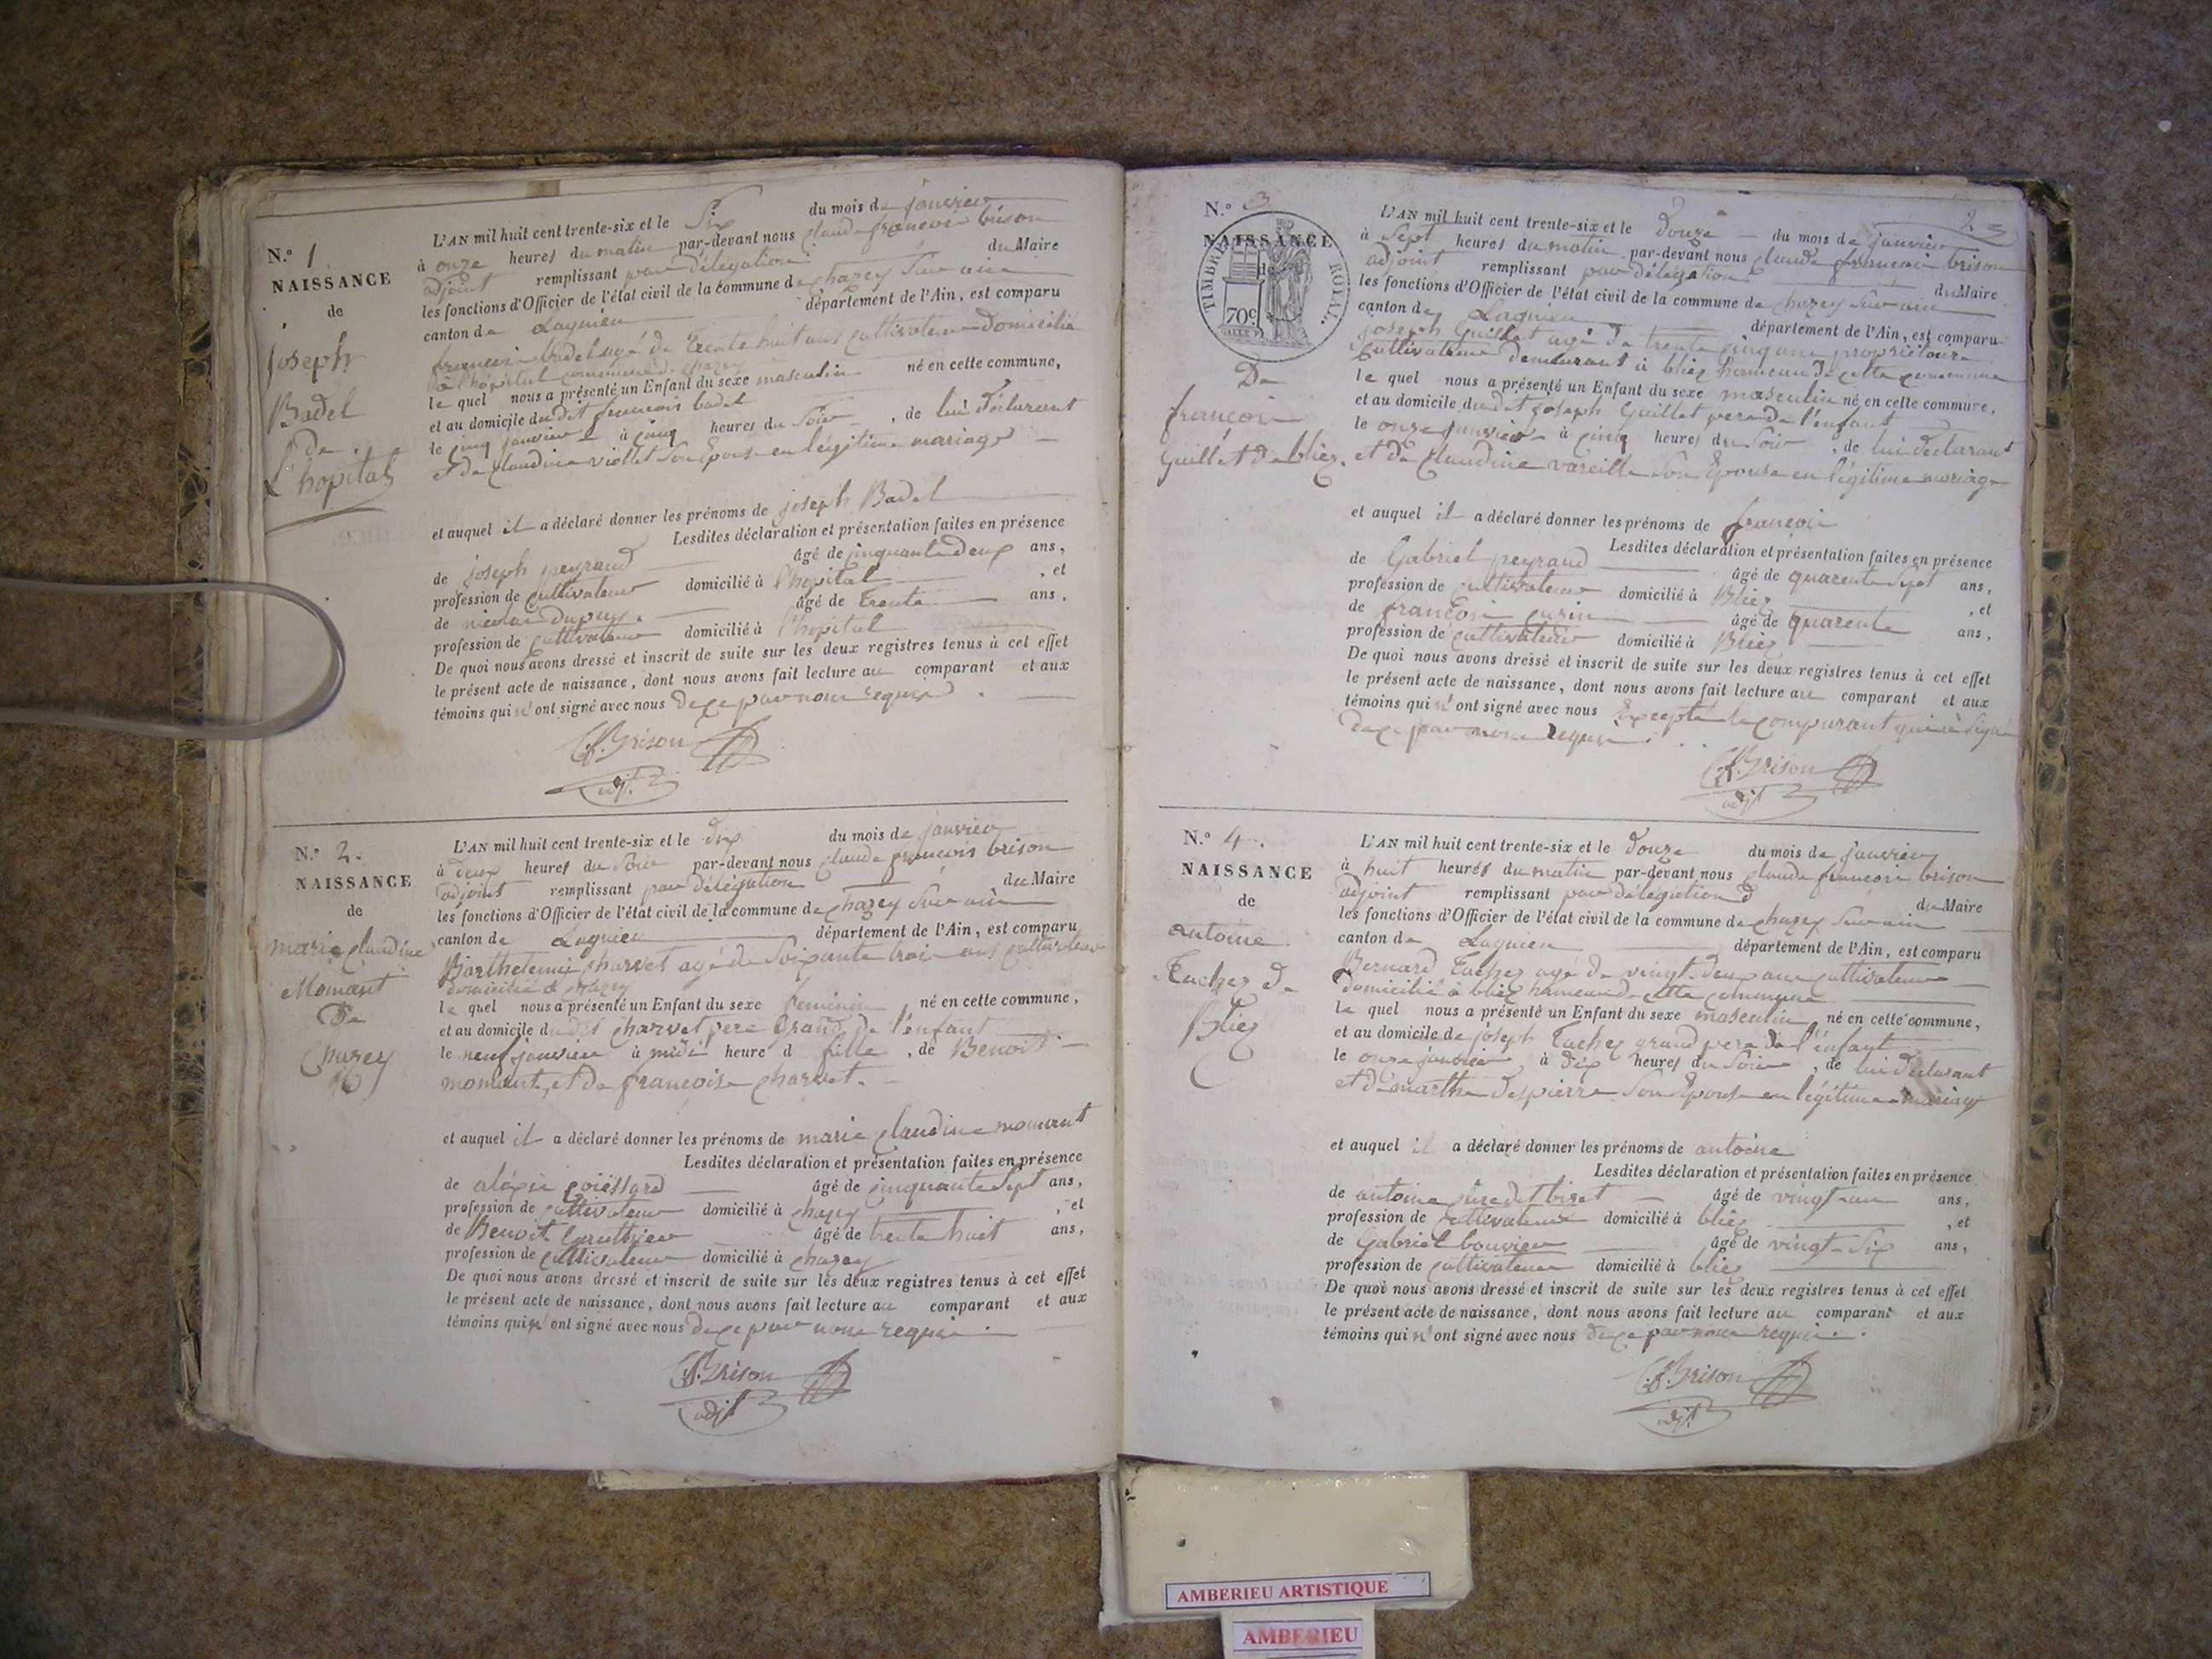 N.° 1
NAISSANCE
de
joseph
Badel
De
L'hopital
L'AN mil huit cent trente-six et le Six du mois de janvier
à onze heures du matin par-devant nous claude françois brison
adjoint remplissant par délégation du Maire
les fonctions d'Officier de l'état civil de la commune de chazey Sur ain
canton de Lagnieu département de l'Ain, est comparu
françois badel agé de trente huit ans cultivateur domicilié
à l'hôpital commune de chazey
le quel nous a présenté un Enfant du sexe masculin né en cette commune,
et au domicile dudit françois badel
le cinq janvier à cinq heures du Soir, de lui déclarant
et de claudine viollet Son Epouse en légitime mariage
et auquel il a déclaré donner les prénoms de joseph Badel
Lesdites déclaration et présentation faites en présence
de joseph peyraud âgé de cinquante deux ans,
profession de cultivateur domicilié à l'hopital, et
de nicolas dupuy. âgé de trente ans,
profession de cultivateur domicilié à l'hopital
De quoi nous avons dressé et inscrit de suite sur les deux registres tenus à cet effet
le présent acte de naissance, dont nous avons fait lecture au comparant et aux
témoins qui n'ont signé avec nous de ce par nous requis.
C.f. Brison
adjt
N.° 2.
NAISSANCE
de
marie claudine
Momant
De
Chazey
L'AN mil huit cent trente-six et le dix du mois de janvier
à deux heures du Soir par-devant nous claude françois brison
adjoint remplissant par délégation du Maire
les fonctions d'Officier de l'état civil de la commune de chazey Sur ain
canton de Lagnieu département de l'Ain, est comparu
Barthelemie charvet agé de Soixante trois ans cultivateur
domicilié à chazey
le quel nous a présenté un Enfant du sexe feminin né en cette commune,
et au domicile dudit charvet pere Grand de l'enfant
le neuf janvier à midi heure d fille, de Benoit
momant, et de françoise charvet.
et auquel il a déclaré donner les prénoms de marie claudine momant
Lesdites déclaration et présentation faites en présence
de âgé de cinquante Sept ans,
profession de cultivateur domicilié à chazey, et
de Benoit Gauthier âgé de trente huit ans,
profession de cultivateur domicilié à chazey
De quoi nous avons dressé et inscrit de suite sur les deux registres tenus à cet effet
le présent acte de naissance, dont nous avons fait lecture au comparant et aux
témoins qui n'ont signé avec nous de ce par nous requis.
C.f. Brison
adjt
2
N.° 3
NAISSANCE
TIMBRE ROYAL.
70c
De
françois
Guillet de bliez.
L'AN mil huit cent trente-six et le Douze du mois de janvier
à Sept heures du matin par-devant nous claude françois brison
adjoint remplissant par délégation du Maire
les fonctions d'Officier de l'état civil de la commune de chazey Sur ain
canton de Lagnieu département de l'Ain, est comparu
joseph Guillet agé de trente cinq ans propriétaire
Cultivateur demeurant à bliez hameau de cette commune
le quel nous a présenté un Enfant du sexe masculin né en cette commune,
et au domicile dudit joseph Guillet pere de l'enfant
le onze janvier à cinq heures du Soir, de lui déclarant
et de claudine vareille Son Epouse en légitime mariage
et auquel il a déclaré donner les prénoms de françois
Lesdites déclaration et présentation faites en présence
de Gabriel peyraud âgé de quarente Sept ans,
profession de cultivateur domicilié à Bliez, et
de françois curin âgé de quarente ans,
profession de cultivateur domicilié à Bliez
De quoi nous avons dressé et inscrit de suite sur les deux registres tenus à cet effet
le présent acte de naissance, dont nous avons fait lecture au comparant et aux
témoins qui n'ont signé avec nous Excepté le comparant qui à Signé
de ce par nous requis.
C.f. Brison
adjt
N.° 4.
NAISSANCE
de
antoine
Tachez de
Bliez
L'AN mil huit cent trente-six et le Douze du mois de janvier
à huit heures du matin par-devant nous claude françois brison
adjoint remplissant par délégation du Maire
les fonctions d'Officier de l'état civil de la commune de chazey Sur ain
canton de Lagnieu département de l'Ain, est comparu
Bernard Tachez agé de vingt-deux ans cultivateur
domicilié à bliez hameau de cette commune
le quel nous a présenté un Enfant du sexe masculin né en cette commune,
et au domicile de joseph Tachez grand pere de l'enfant
le onze janvier à dix heures du Soir, de lui déclarant
et de marthe despierre Son Epouse en légitime mariage
et auquel il a déclaré donner les prénoms de antoine
Lesdites déclaration et présentation faites en présence
de antoine dit biset âgé de vingt-un ans,
profession de cultivateur domicilié à bliez, et
de Gabriel bouvier âgé de vingt-Six ans,
profession de cultivateur domicilié à bliez
De quoi nous avons dressé et inscrit de suite sur les deux registres tenus à cet effet
le présent acte de naissance, dont nous avons fait lecture au comparant et aux
témoins qui n'ont signé avec nous de ce par nous requis.
C.f. Brison
adjt
AMBERIEU ARTISTIQUE
AMBERIEU